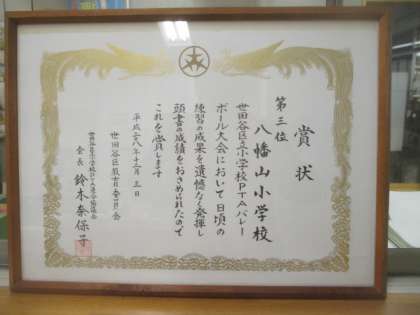 賞状
第三位
八幡山小学校
世田谷区立小学校PTAバレー
ボール大会において日頃の
練習の成果を遺憾なく発揮し
頭書の成績をおさめられたので
これを賞します
平成二八年十二月三日
世田谷区教育委員会
世田谷区立小学校PTA連合協議会
会長 鈴木奈保子